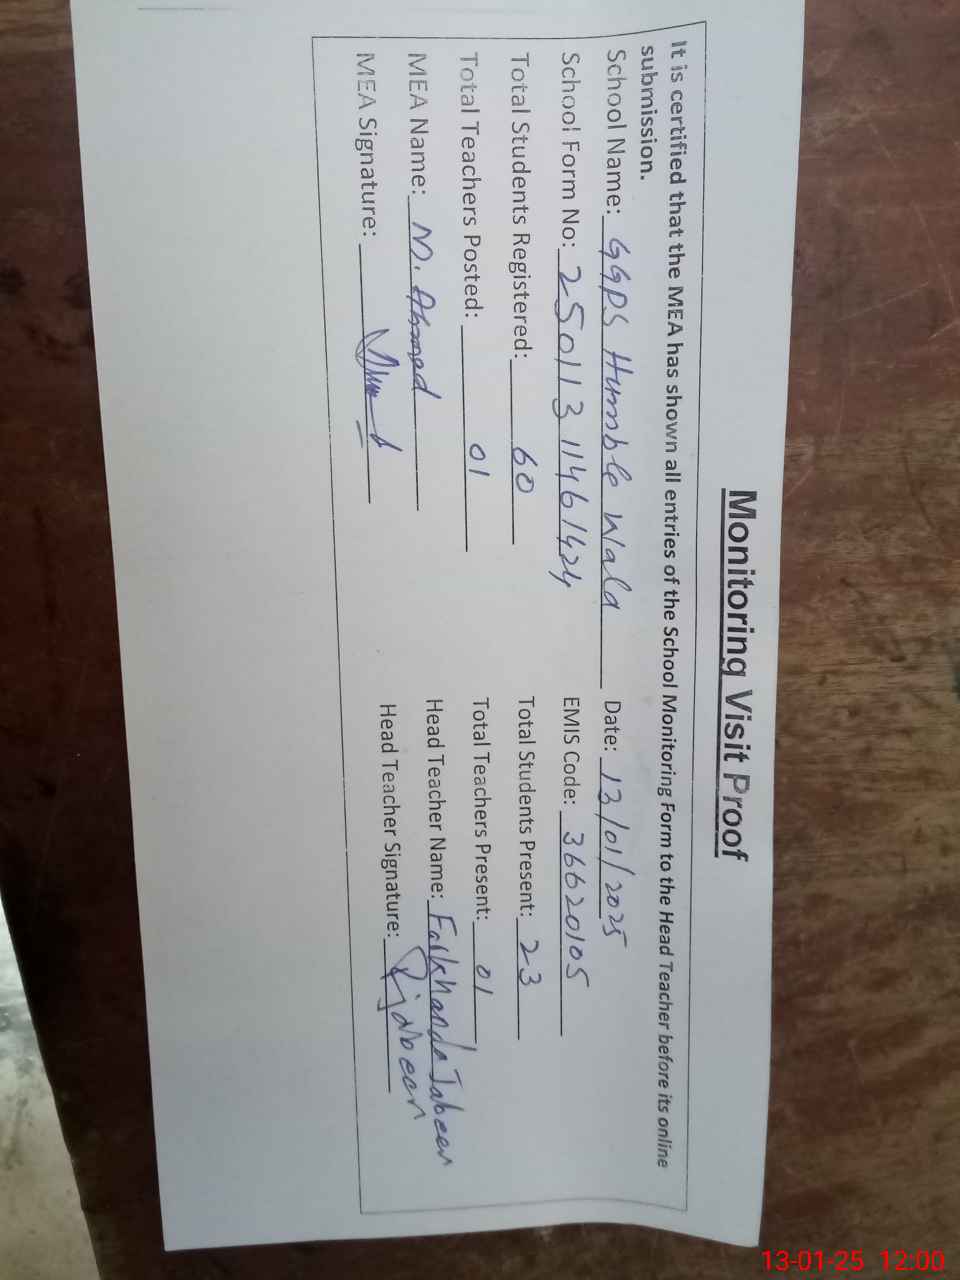 Monitoring Visit Proof
It is certified that the MEA has shown all entries of the School Monitoring Form to the Head Teacher before its online
submission.
School Name: GGPS Humble Wala Date: 13/01/2025
School Form No: 250113 11461424 EMIS Code: 36620105
Total Students Registered: 60 Total Students Present: 23
Total Teachers Posted: 01 Total Teachers Present: 01
MEA Name: M. Ahmad Head Teacher Name: Farkhanda Jabeen
MEA Signature: Head Teacher Signature: Fjabeen
13-01-25 12:00